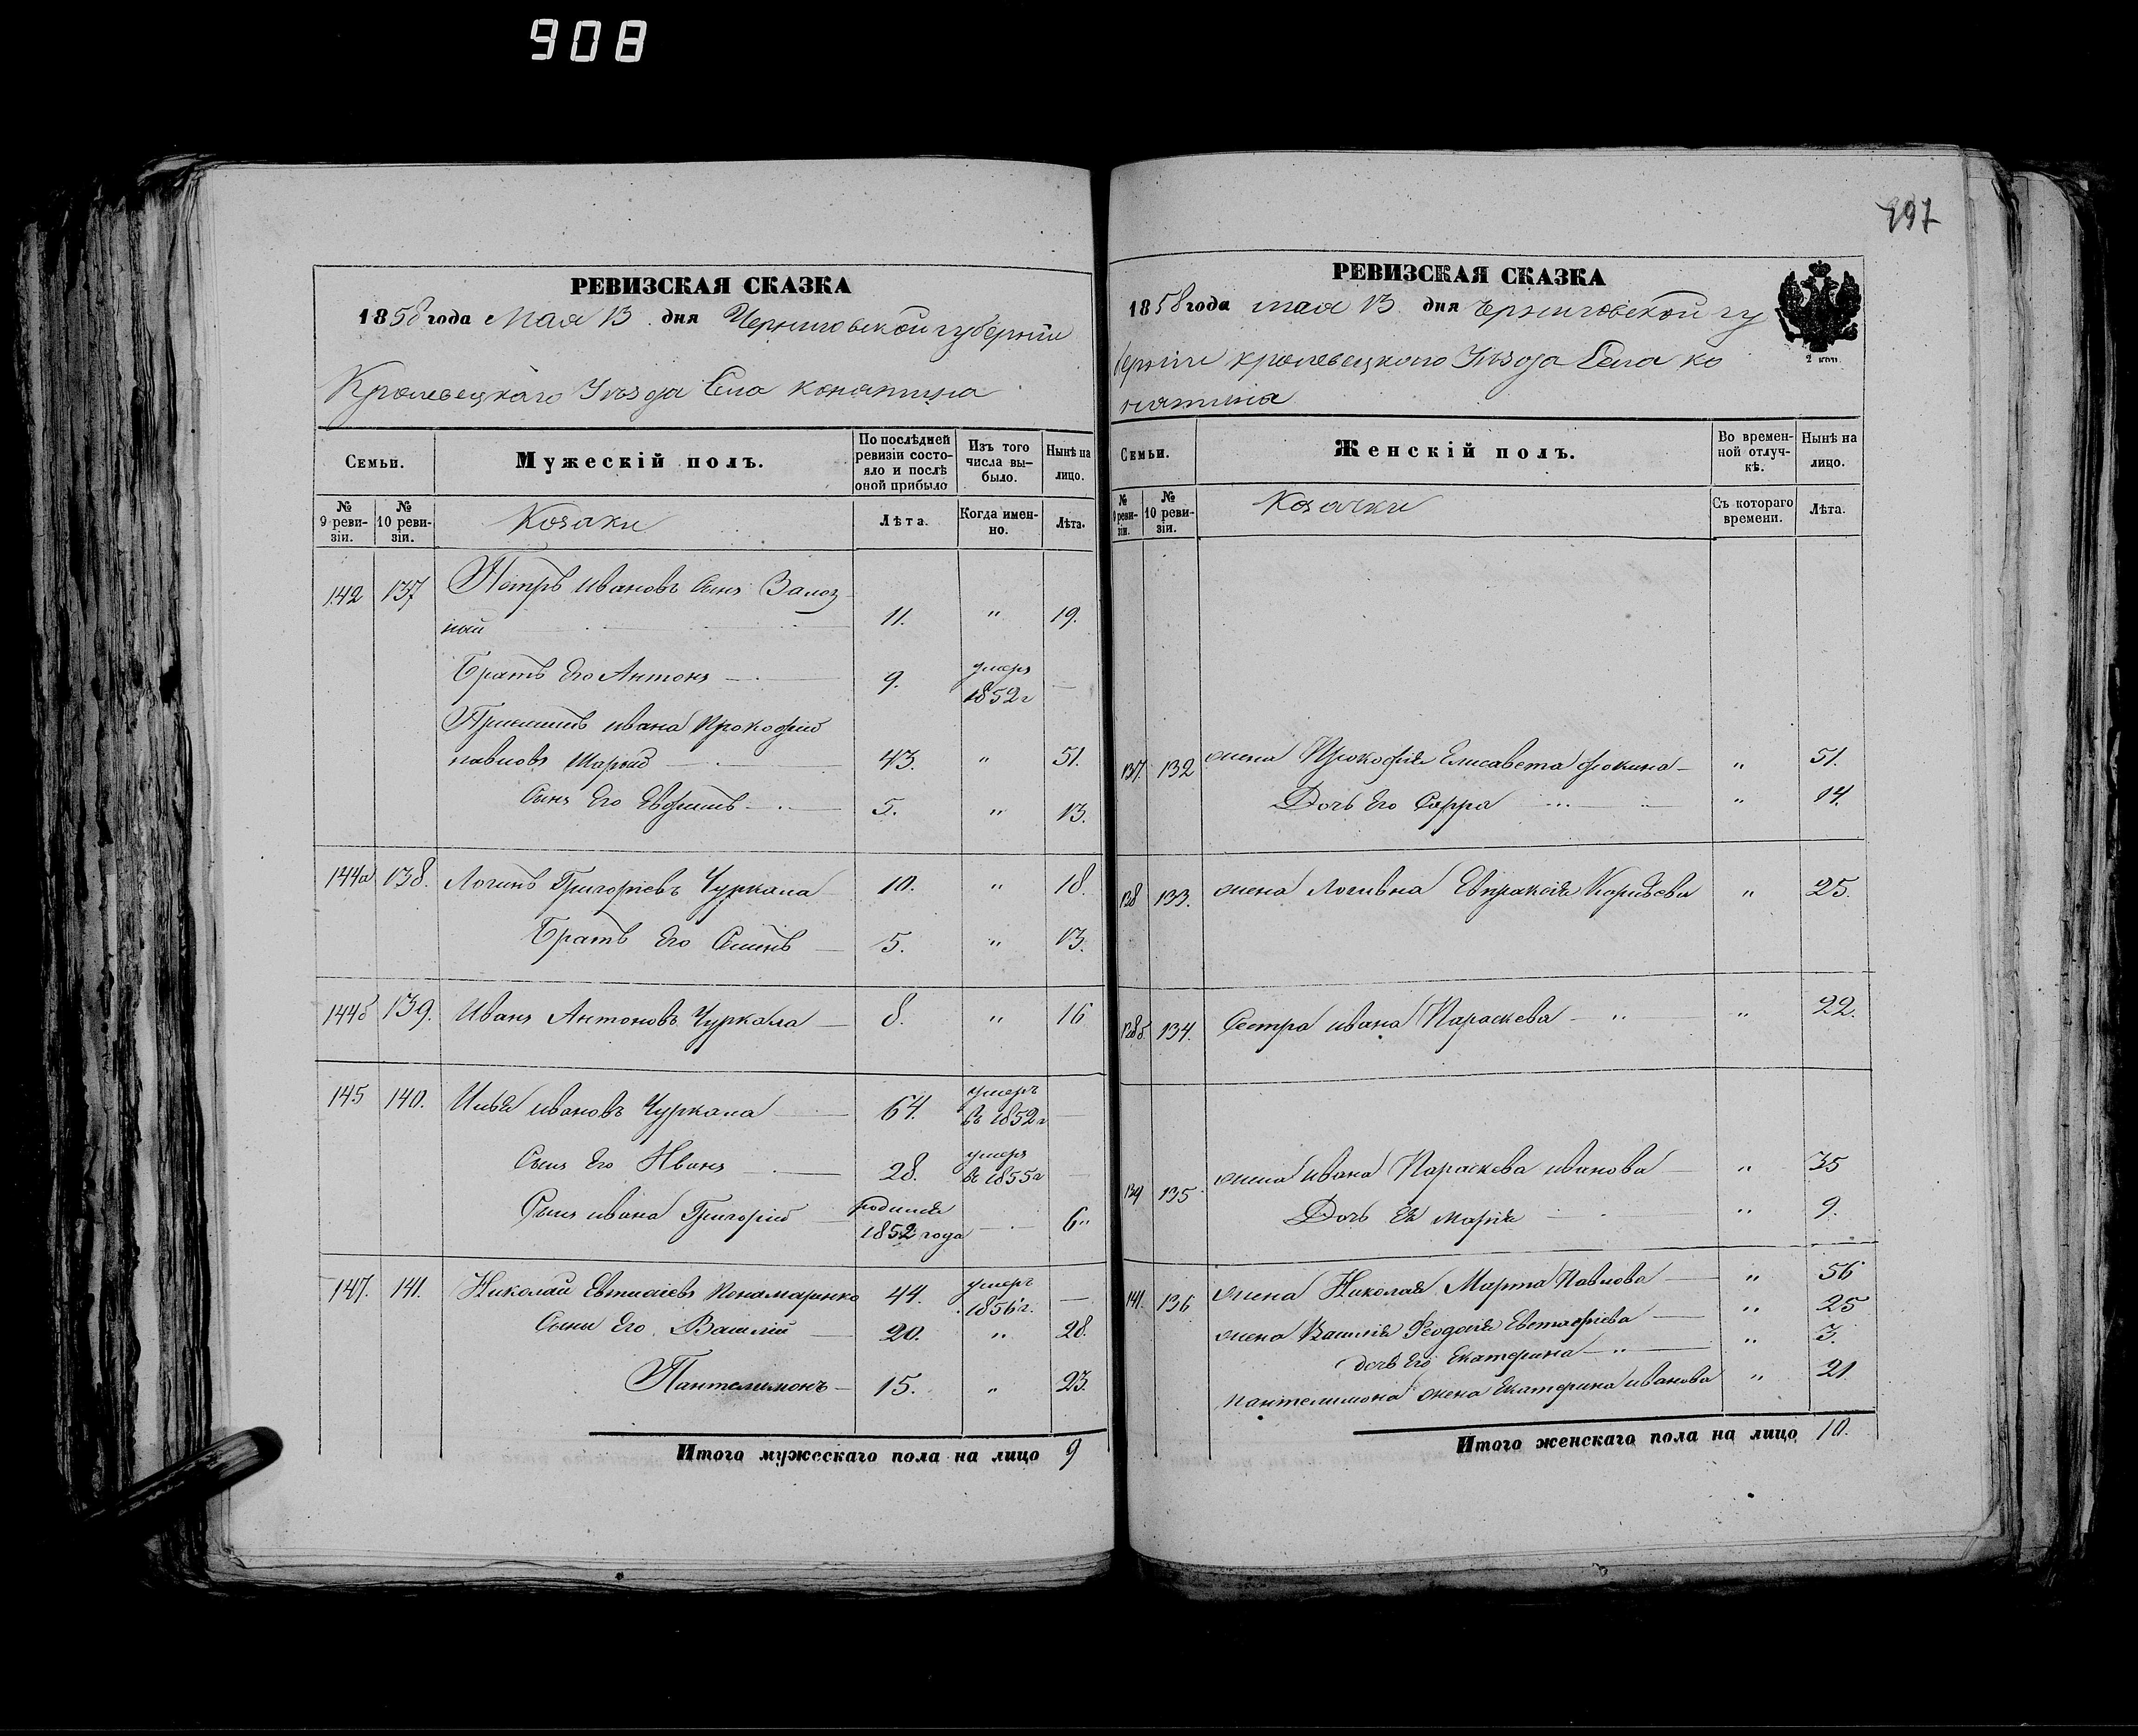 908
РЕВИЗСКАЯ СКАЗКА
1858 года Мая 13 дня Черниговской губерніи
Кролевецкаго Уѣзда Села Конятина
Семьи.
Мужескій полъ.
По послѣдней ревизіи состояло и послѣ оной прибыло
Изъ того числа выбыло.
Нынѣ на лицо.
№ 9 ревизіи.
№ 10 ревизіи.
Козаки
Лѣта.
Когда именно.
Лѣта.
142 137 Петръ Ивановъ Сынъ
ный 11. " 19.
Братъ Его Антонъ 9. умеръ 1852г —
Ивана Прокофій
Павловъ 43. " 51.
Сынъ Его Евфимъ 5. " 13.
144а 138. Логинъ Григоріевъ Чуркала 10. " 18.
Братъ Его Семенъ 5. " 13.
144б 139. Иванъ Антоновъ Чуркала 8. " 16
145 140. Илья Ивановъ Чуркала 64. умеръ въ 1852г —
Сынъ Его Иванъ 28. умеръ въ 1855г —
Сынъ Ивана Григорій родился 1852 года — 6"
147. 141. Николай Пономаренко 44. умеръ 1856г. —
Сыны Его Василій 20. " 28.
Пантелимонъ 15. " 23.
Итого мужескаго пола на лицо 9
297
РЕВИЗСКАЯ СКАЗКА
1858 года мая 13 дня Черниговской гу
берніи Кролевецкаго Уѣзда Села Ко
нятина
2 коп.
Семьи.
Женскій полъ.
Во временной отлучкѣ.
Нынѣ на лицо.
№ 9 ревизіи.
№ 10 ревизіи.
Козачки
Съ котораго времени.
Лѣта.
137. 132 жена Прокофія Елисавета Фокина " 51.
Дочь Его Сарра " 14.
138 133. жена Логивна Евпраксія " 25.
138б 134. Сестра Ивана Параскева " 22.
139 135 жена Ивана Параскева Иванова " 35
Дочь Ея Марія " 9.
141. 136 жена Николая Марта Павлова " 56
жена Василія Феодосія Евстафіева " 25
дочь Его Екатерина " 3.
Пантелимона жена Екатерина Иванова " 21
Итого женскаго пола на лицо 10.